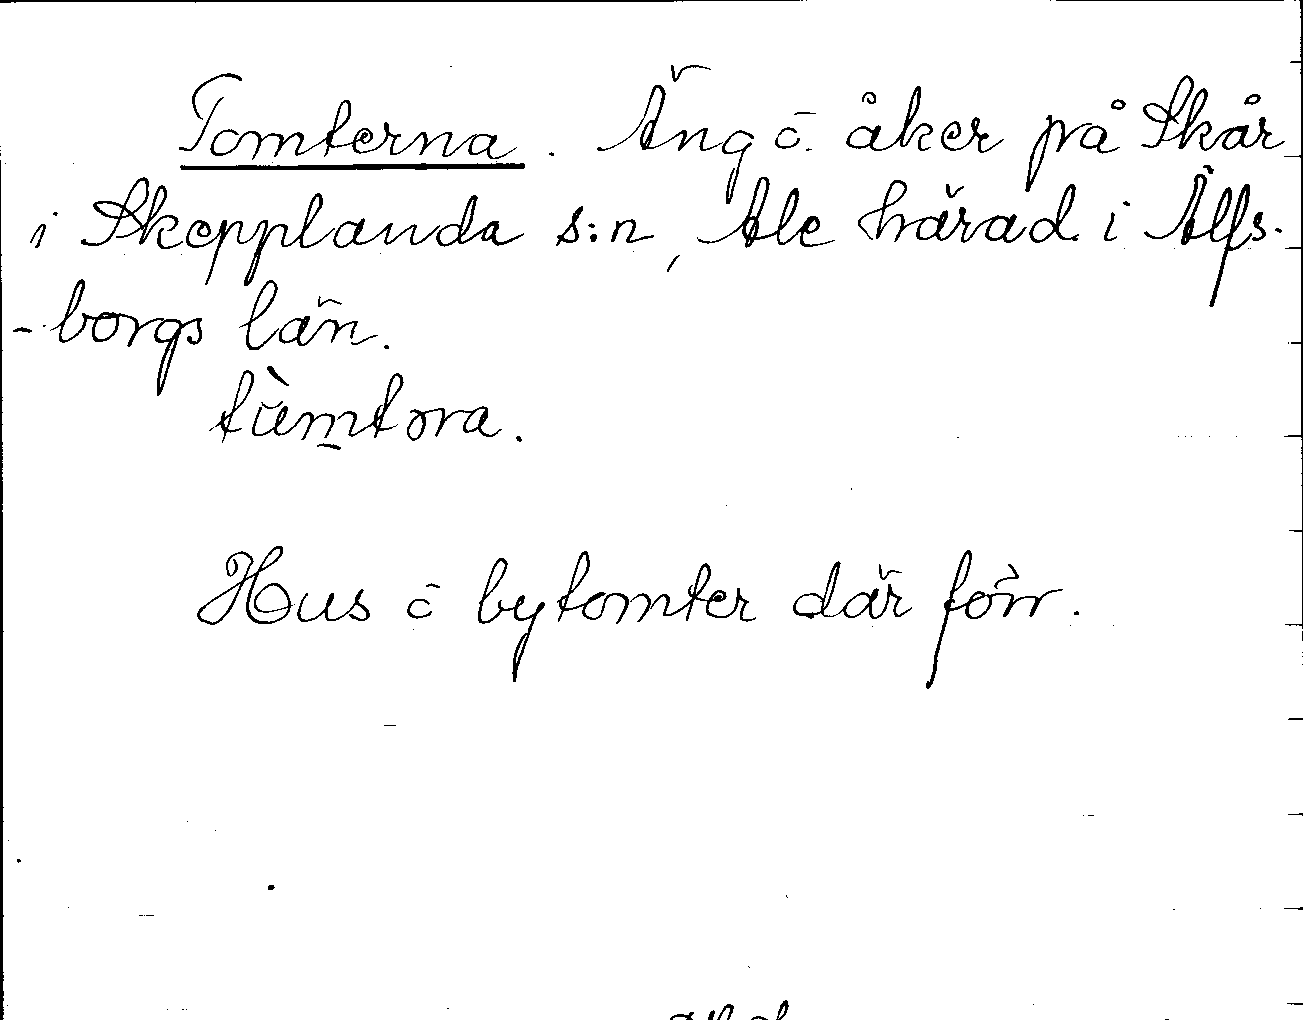 Tomterna. Äng ō. åker på Skår
i Skepplanda s:n, Ale härad i Älfs-
-borgs län.
tùmtɔra.
Hus ō bytomter där förr.